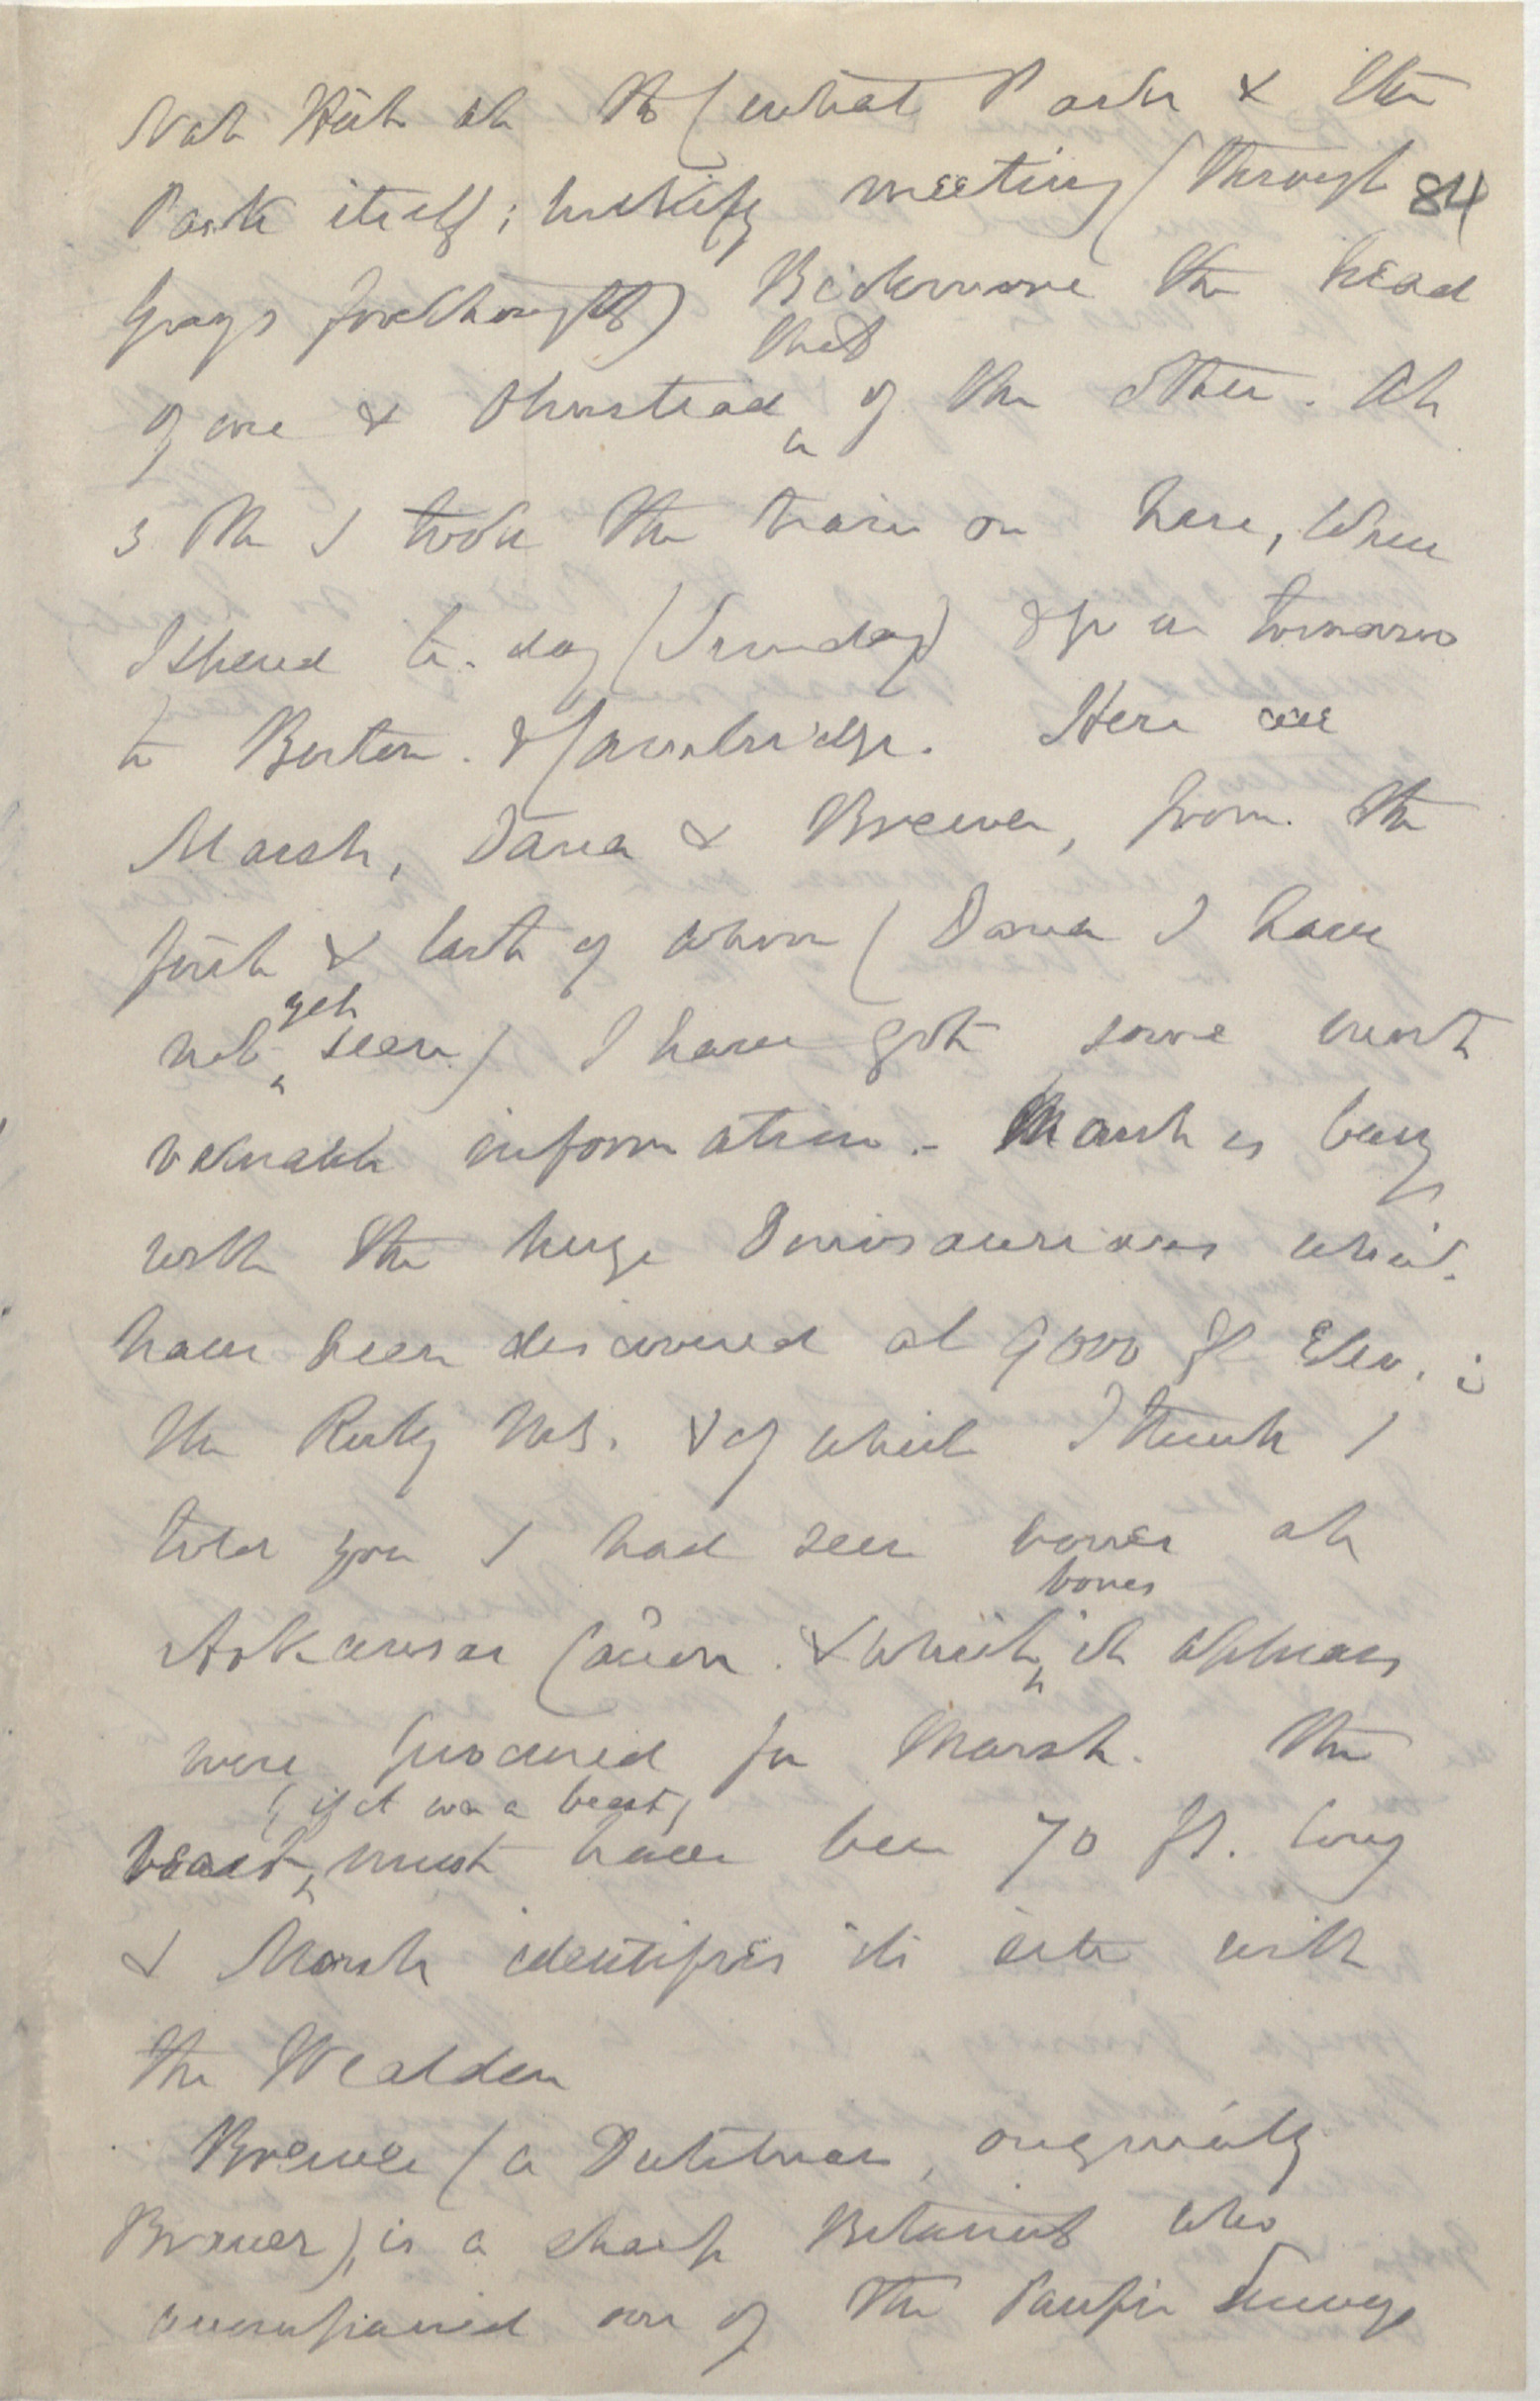 Nat Hist at the Central Park & the
Park itself; luckily meeting (through 84
Grays forethought) Bickmore the head
of one & Olmstead ^that of the other. At
3 PM I took the train on here, where
I spend to-day (Sunday) & go on tomorrow
to Boston. & Cambridge. Here are
Marsh, Dana & Brewer, from the
first & last of whom (Dana I have
not ^yet seen) I have got some most
valuable information. - Marsh is busy
with the huge Dinosaurians which
have been discovered at 9000 ft Elev. in
the Rocky Mts. & of which I think I
told you I had seen bones at
Arkansas Cañon. & which ^bones it appears
were procured for Marsh. The
beast ^(if it was a beast) must have been 70 ft. long
& Marsh identifies its site with
the Wealden
Brewer (a Dutchman, originally
Brauer), is a sharp Botanist who
accompanied one of the Pacific Surveys